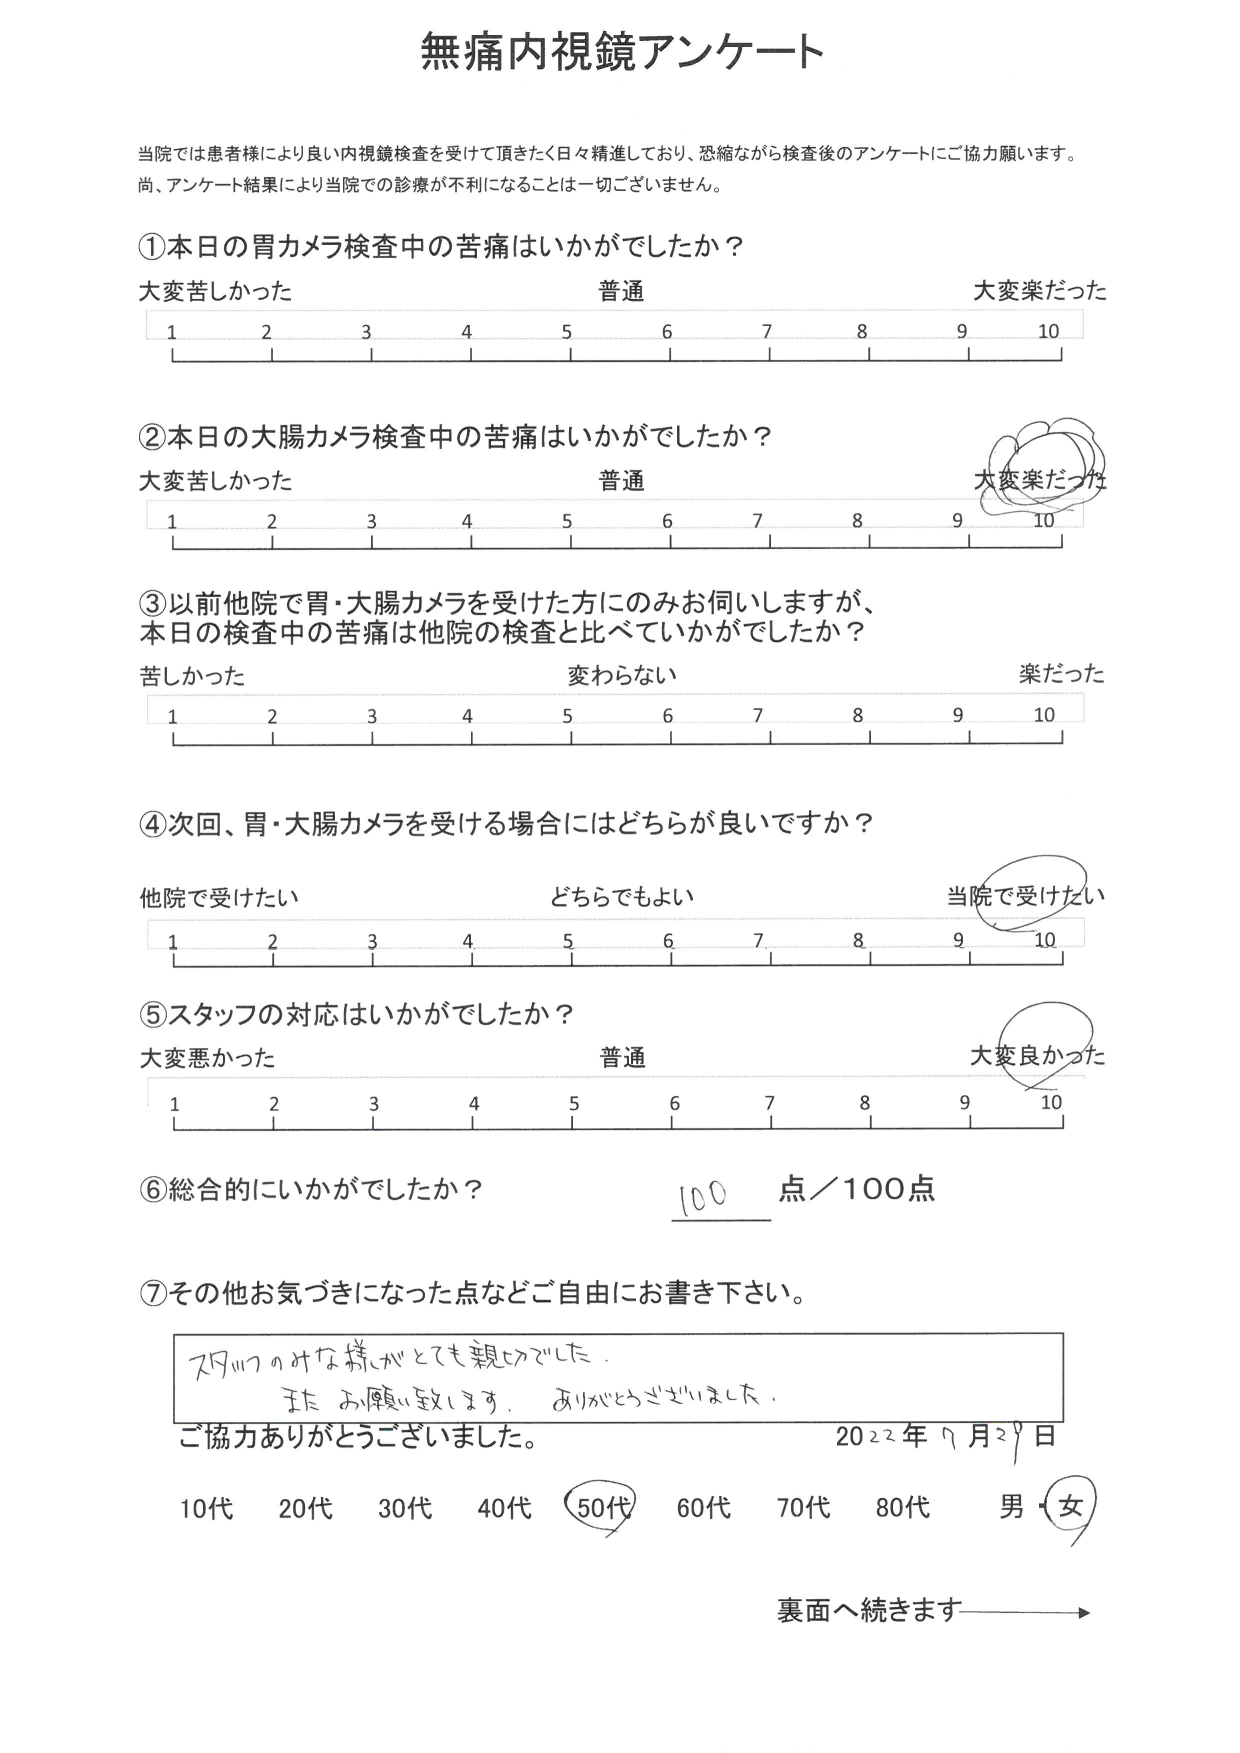 無痛内視鏡アンケート
当院では患者様により良い内視鏡検査を受けて頂きたく日々精進しており、恐縮ながら検査後のアンケートにご協力願います。
尚、アンケート結果により当院での診療が不利になることは一切ございません。
①本日の胃カメラ検査中の苦痛はいかがでしたか？
大変苦しかった 普通 大変楽だった
1 2 3 4 5 6 7 8 9 10
②本日の大腸カメラ検査中の苦痛はいかがでしたか？
大変苦しかった 普通 大変楽だった
1 2 3 4 5 6 7 8 9 10
③以前他院で胃・大腸カメラを受けた方にのみお伺いしますが、
本日の検査中の苦痛は他院の検査と比べていかがでしたか？
苦しかった 変わらない 楽だった
1 2 3 4 5 6 7 8 9 10
④次回、胃・大腸カメラを受ける場合にはどちらが良いですか？
他院で受けたい どちらでもよい 当院で受けたい
1 2 3 4 5 6 7 8 9 10
⑤スタッフの対応はいかがでしたか？
大変悪かった 普通 大変良かった
1 2 3 4 5 6 7 8 9 10
⑥総合的にいかがでしたか？ 100 点／100点
⑦その他お気づきになった点などご自由にお書き下さい。
スタッフのみな様がとても親切でした.
また お願い致します. ありがとうございました.
ご協力ありがとうございました。 2022年 7月29日
10代 20代 30代 40代 50代 60代 70代 80代 男・女
裏面へ続きます